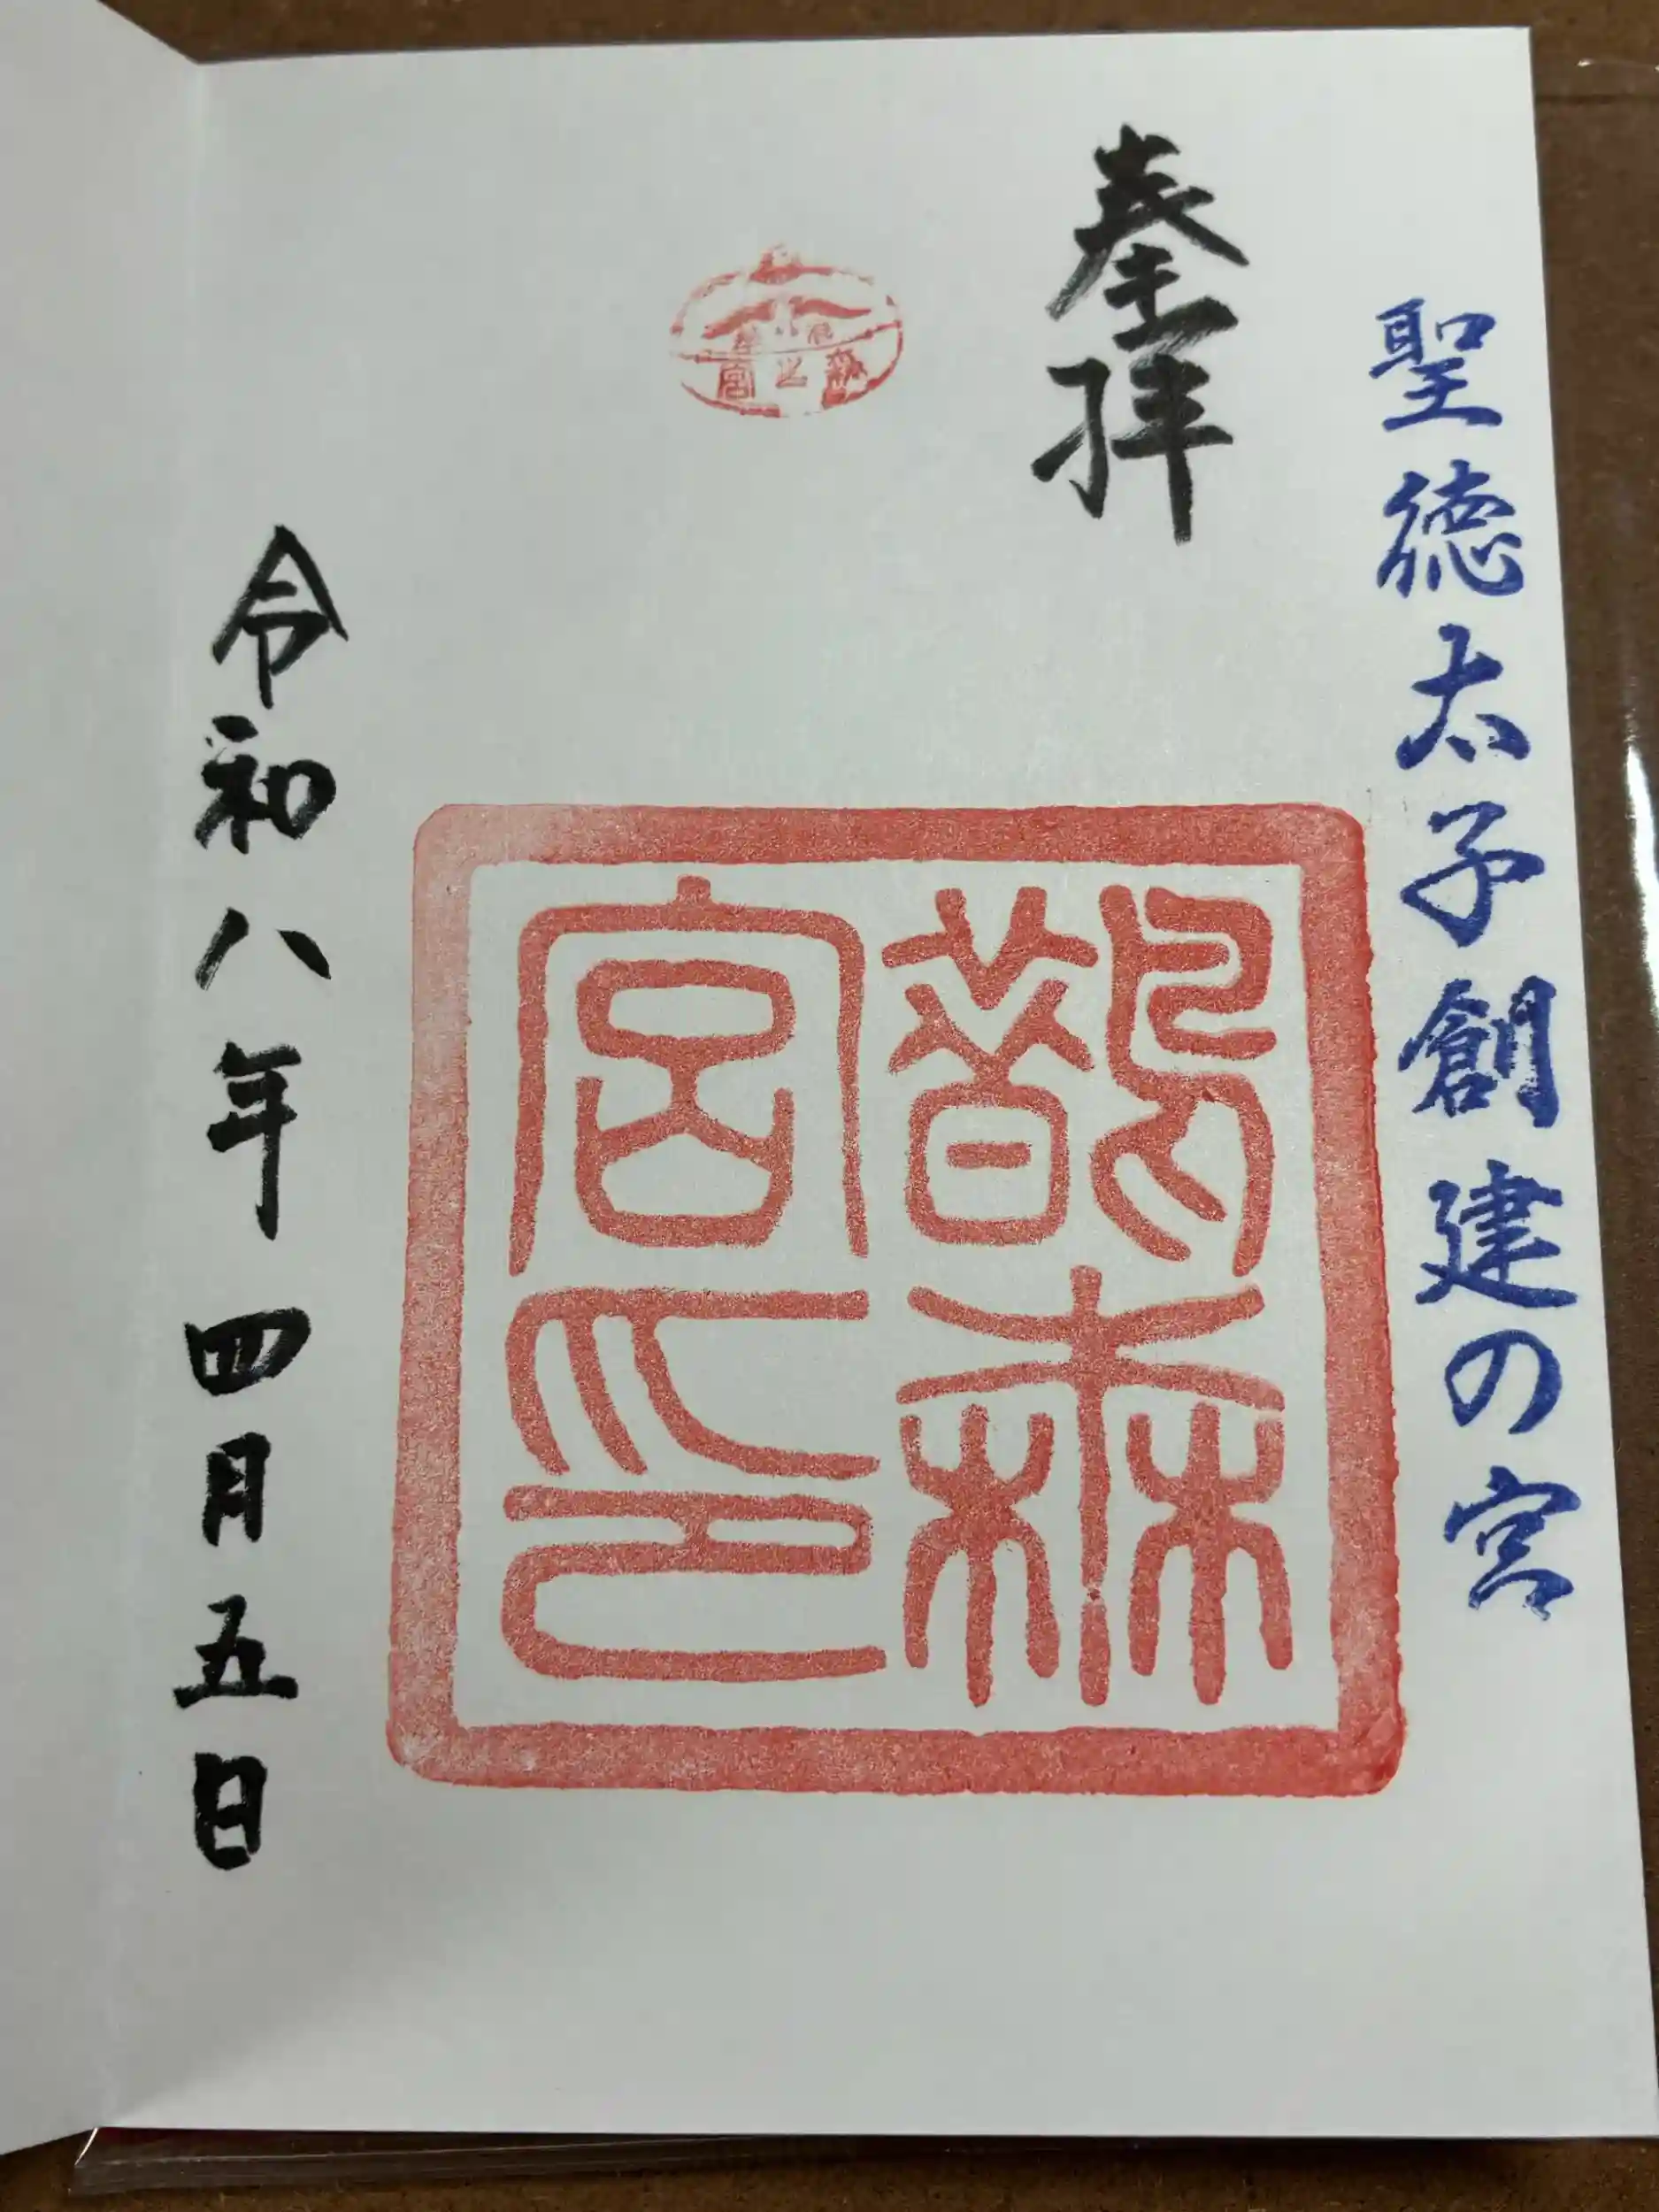 聖徳太子創建の宮
奉拝
森之宮
鵲森
宮印
令和八年四月五日